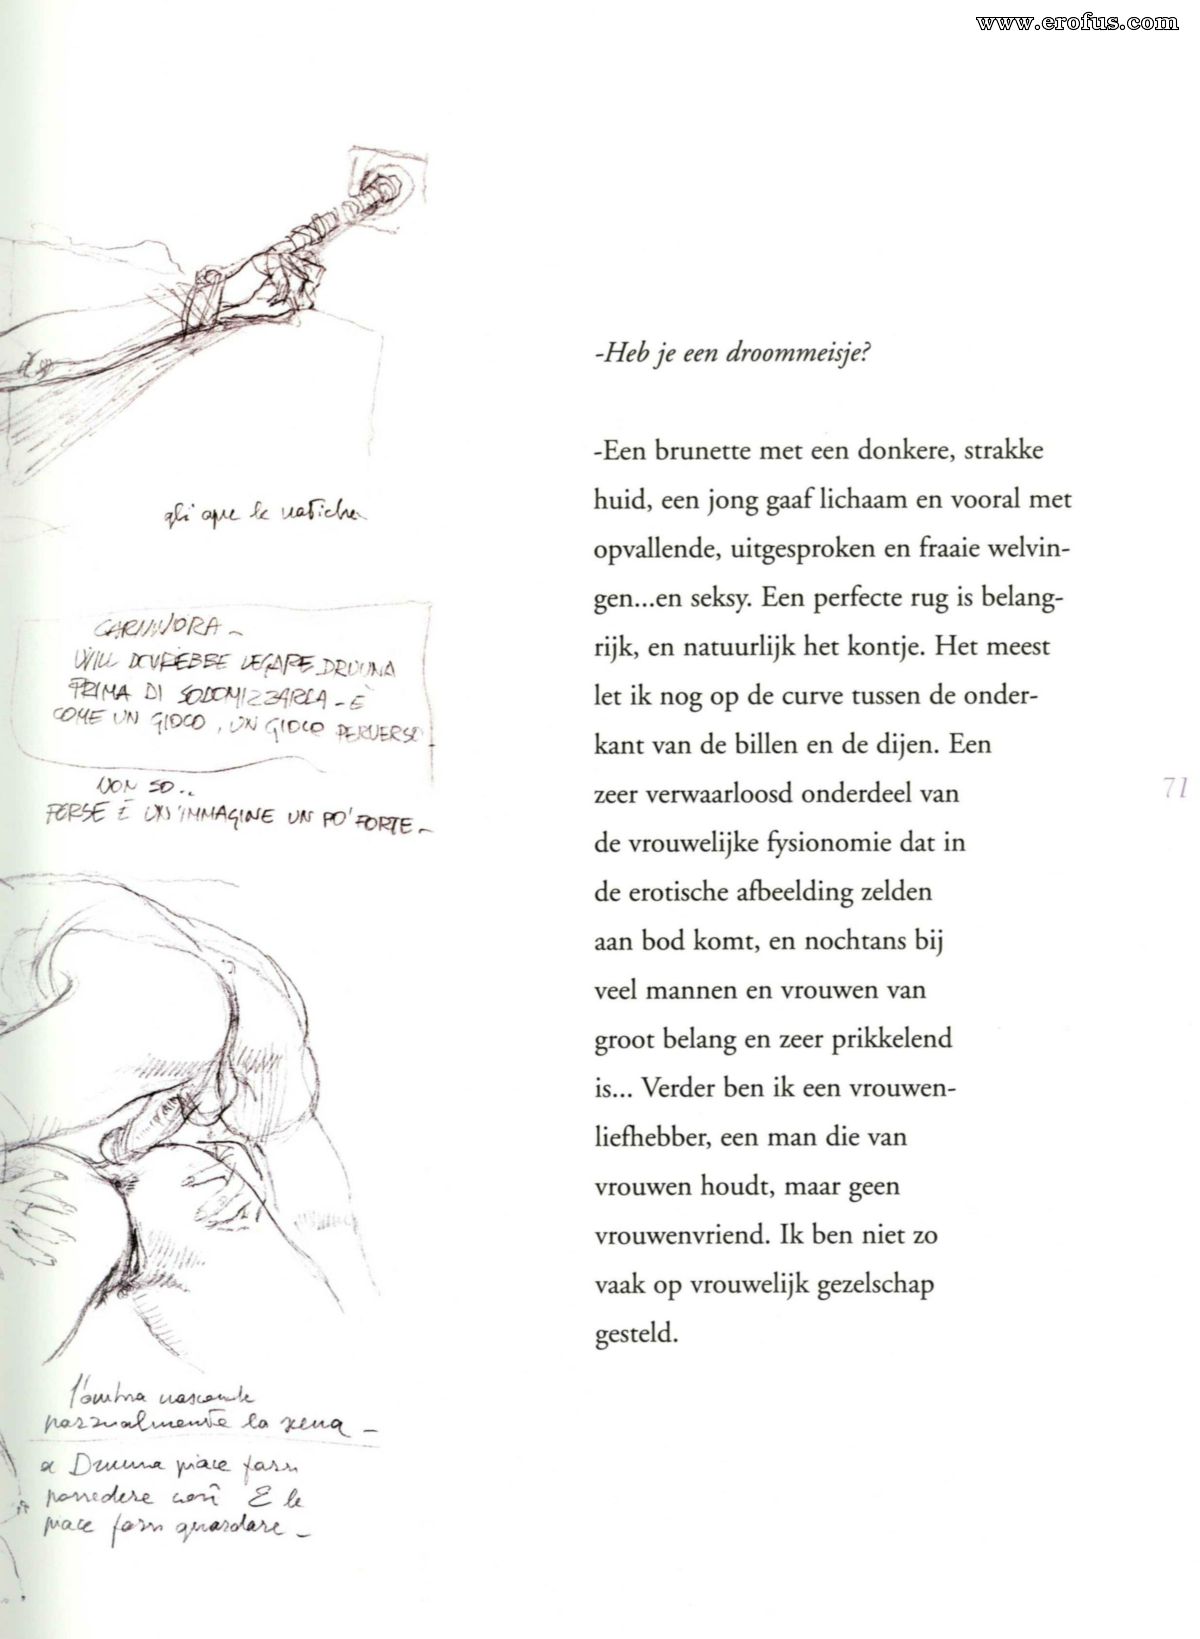 www.erofus.com
gli apre le natiche
CARNIVORA -
WILL DOVREBBE LEGARE DRUUNA
PRIMA DI SODOMIZZARLA - È
COME UN GIOCO, UN GIOCO PERVERSO
NON SO..
FORSE È UN'IMMAGINE UN PO' FORTE -
l'ombra nasconde
parzialmente la scena -
a Druuna piace farsi
possedere così E le
piace farsi guardare -
-Heb je een droommeisje?
-Een brunette met een donkere, strakke
huid, een jong gaaf lichaam en vooral met
opvallende, uitgesproken en fraaie welvin-
gen...en seksy. Een perfecte rug is belang-
rijk, en natuurlijk het kontje. Het meest
let ik nog op de curve tussen de onder-
kant van de billen en de dijen. Een
zeer verwaarloosd onderdeel van
de vrouwelijke fysionomie dat in
de erotische afbeelding zelden
aan bod komt, en nochtans bij
veel mannen en vrouwen van
groot belang en zeer prikkelend
is... Verder ben ik een vrouwen-
liefhebber, een man die van
vrouwen houdt, maar geen
vrouwenvriend. Ik ben niet zo
vaak op vrouwelijk gezelschap
gesteld.
71